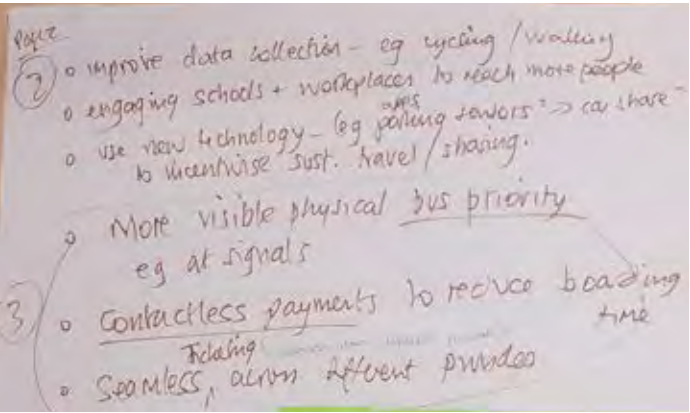 ②
o improve data collection - eg cycling / walking
o engaging schools + workplaces to reach more people
o use new technology - (eg parking sensors → car share
apps
to incentivise sust. travel / sharing.
o More visible physical bus priority
eg at signals
③
o Contactless payments to reduce boarding
time
o Seamless, across different providers
Ticketing